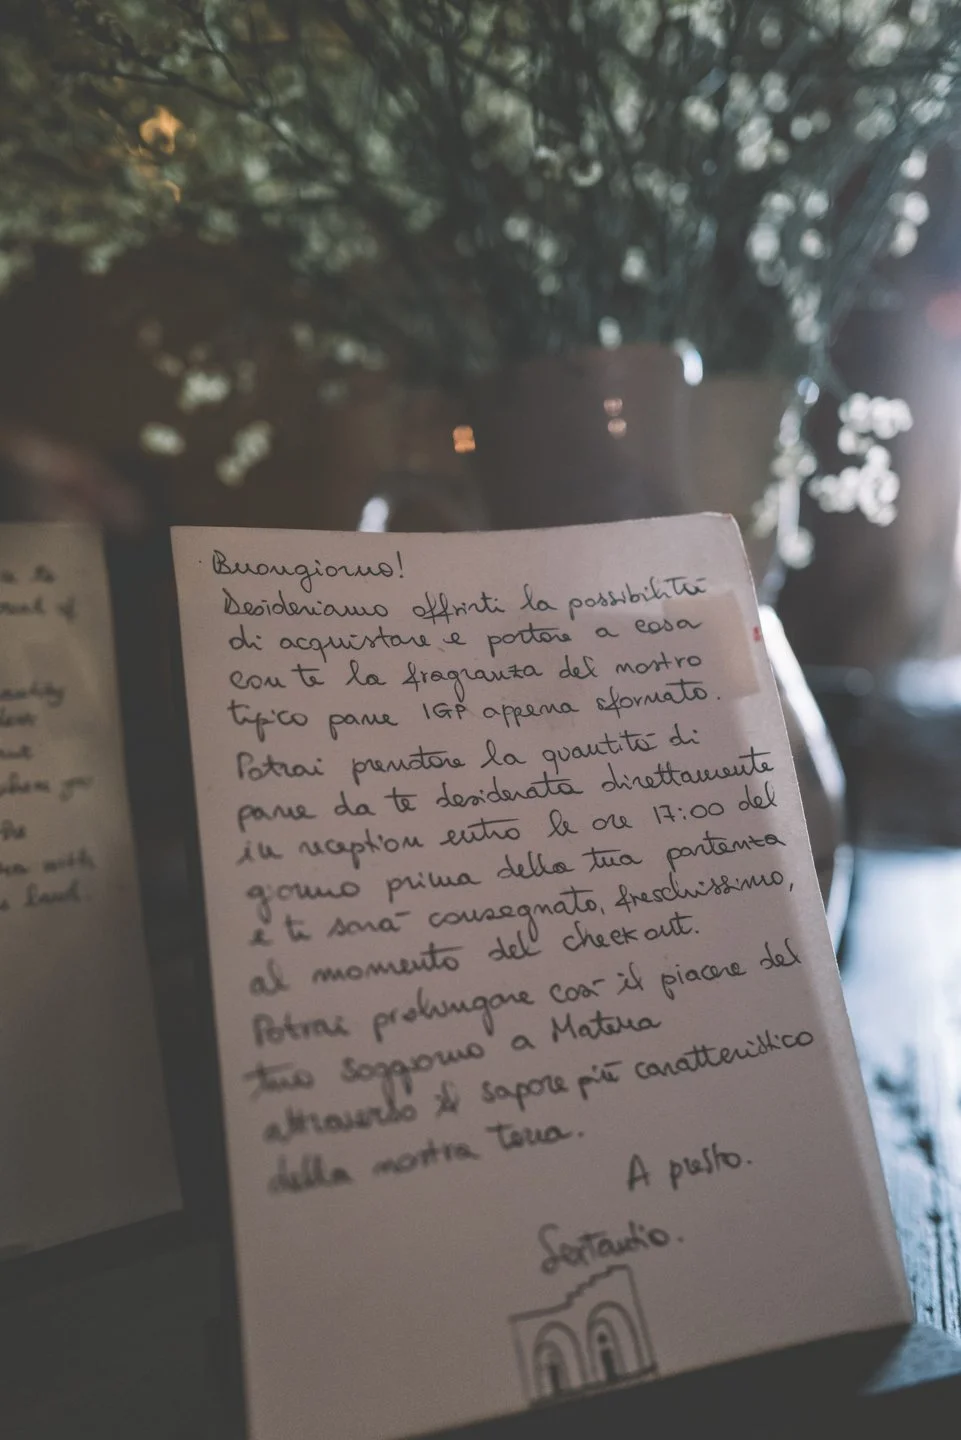 Buongiorno!
Desideriamo offrirti la possibilità
di acquistare e portare a casa
con te la fragranza del nostro
tipico pane IGP appena sfornato.
Potrai prenotare la quantità di
pane da te desiderata direttamente
in reception entro le ore 17:00 del
giorno prima della tua partenza
e ti sarà consegnato, freschissimo,
al momento del check out.
Potrai prolungare così il piacere del
tuo soggiorno a Matera
attraverso il sapore più caratteristico
della nostra terra.
A presto.
Sextantio.
to
of
when you
with